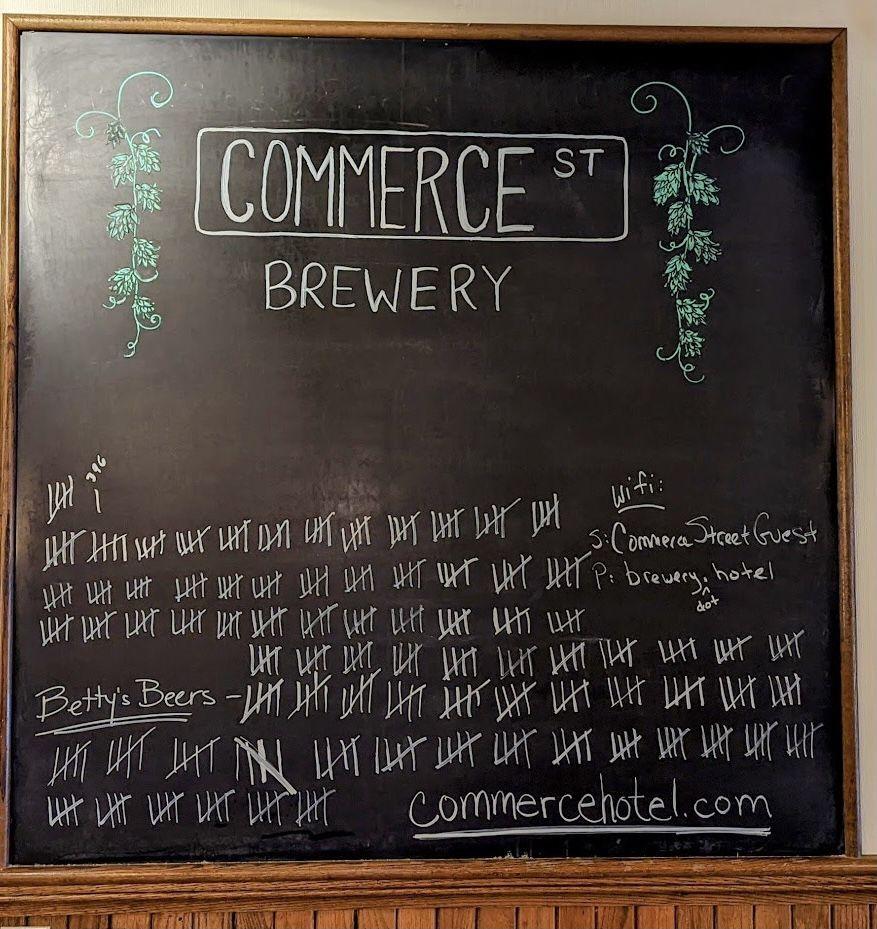 COMMERCE ST
BREWERY
396
wifi:
S: CommerceStreetGuest
P: brewery.hotel
^
dot
Betty's Beers -
commercehotel.com